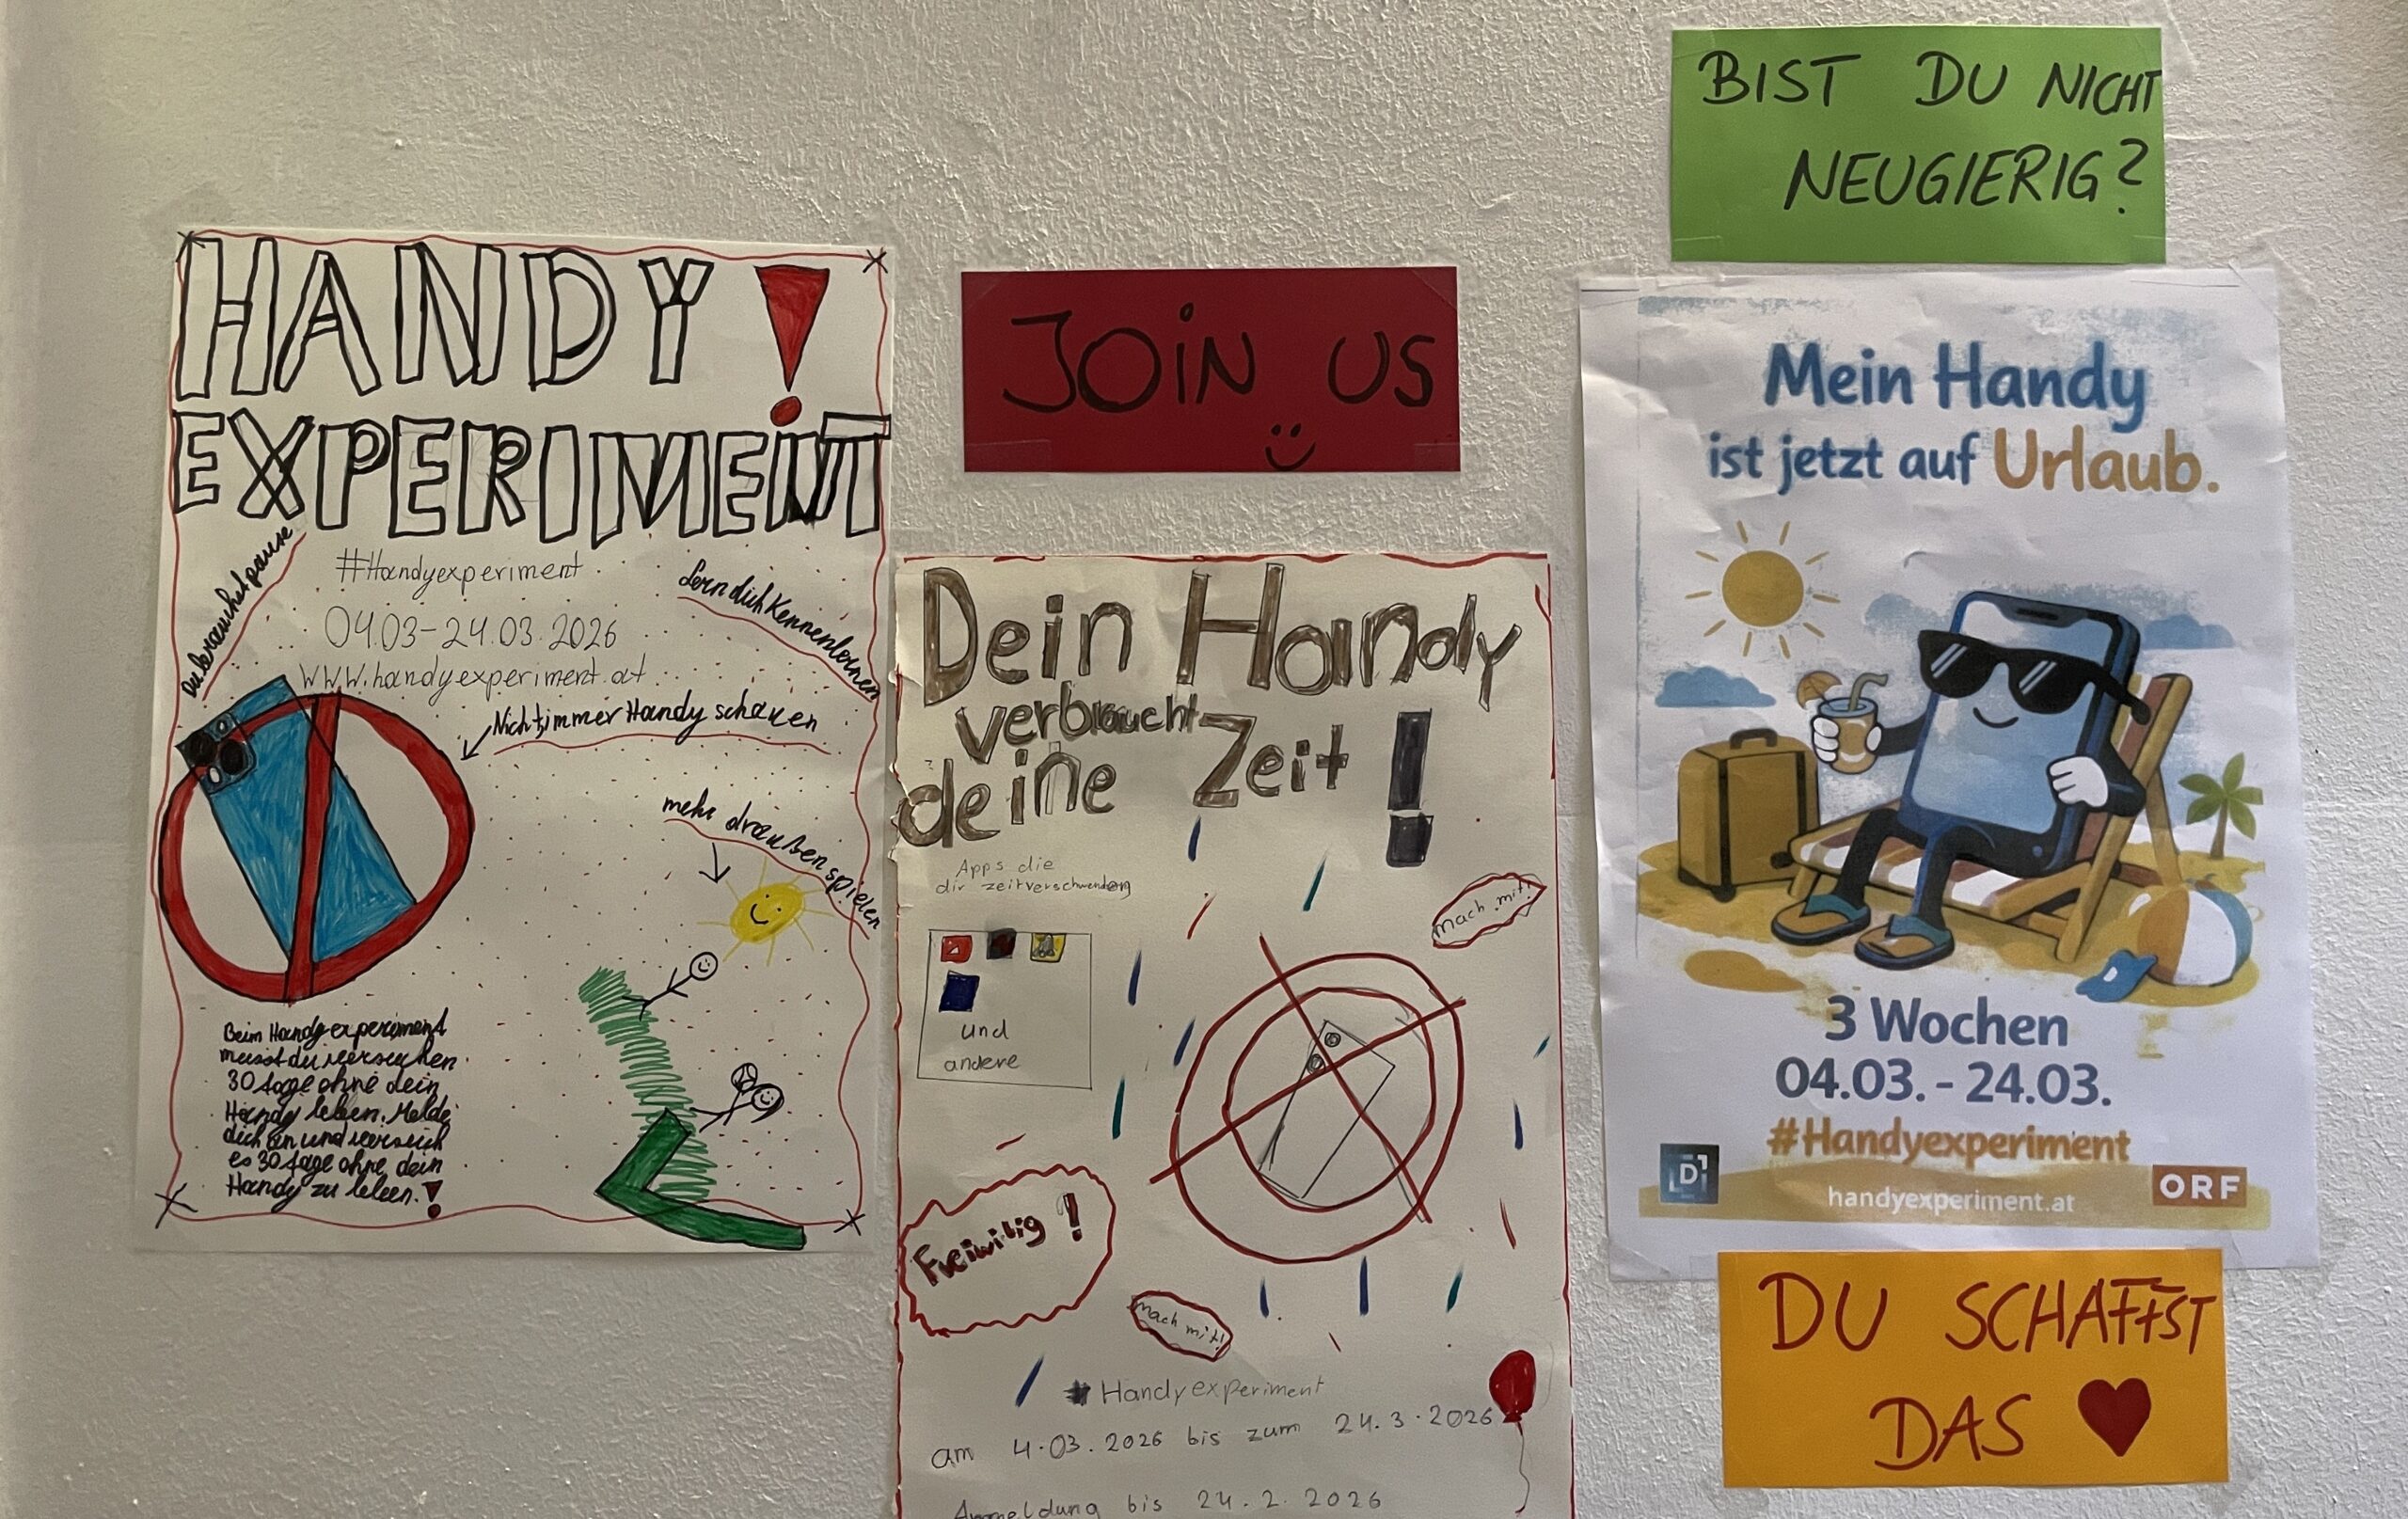 HANDY!
EXPERIMENT
#Handyexperiment
04.03-24.03.2026
www.handyexperiment.at
Du brauchst pause
Lern dich Kennenlernen
Nicht immer Handy schauen
mehr draußen spielen
Beim Handy experiment
musst du versuchen
30 tage ohne dein
Handy leben. Melde
dich an und versuch
es 30 tage ohne dein
Handy zu leben.!
JOIN US
Dein Handy
verbraucht
deine Zeit!
Apps die
dir zeitverschwenden
und
andere
mach mit!
Freiwillig!
mach mit!
#Handyexperiment
am 4.03.2026 bis zum 24.3.2026
Anmeldung bis 24.2.2026
BIST DU NICHT
NEUGIERIG?
Mein Handy
ist jetzt auf Urlaub.
3 Wochen
04.03. - 24.03.
#Handyexperiment
D
ORF
handyexperiment.at
DU SCHAFFST
DAS